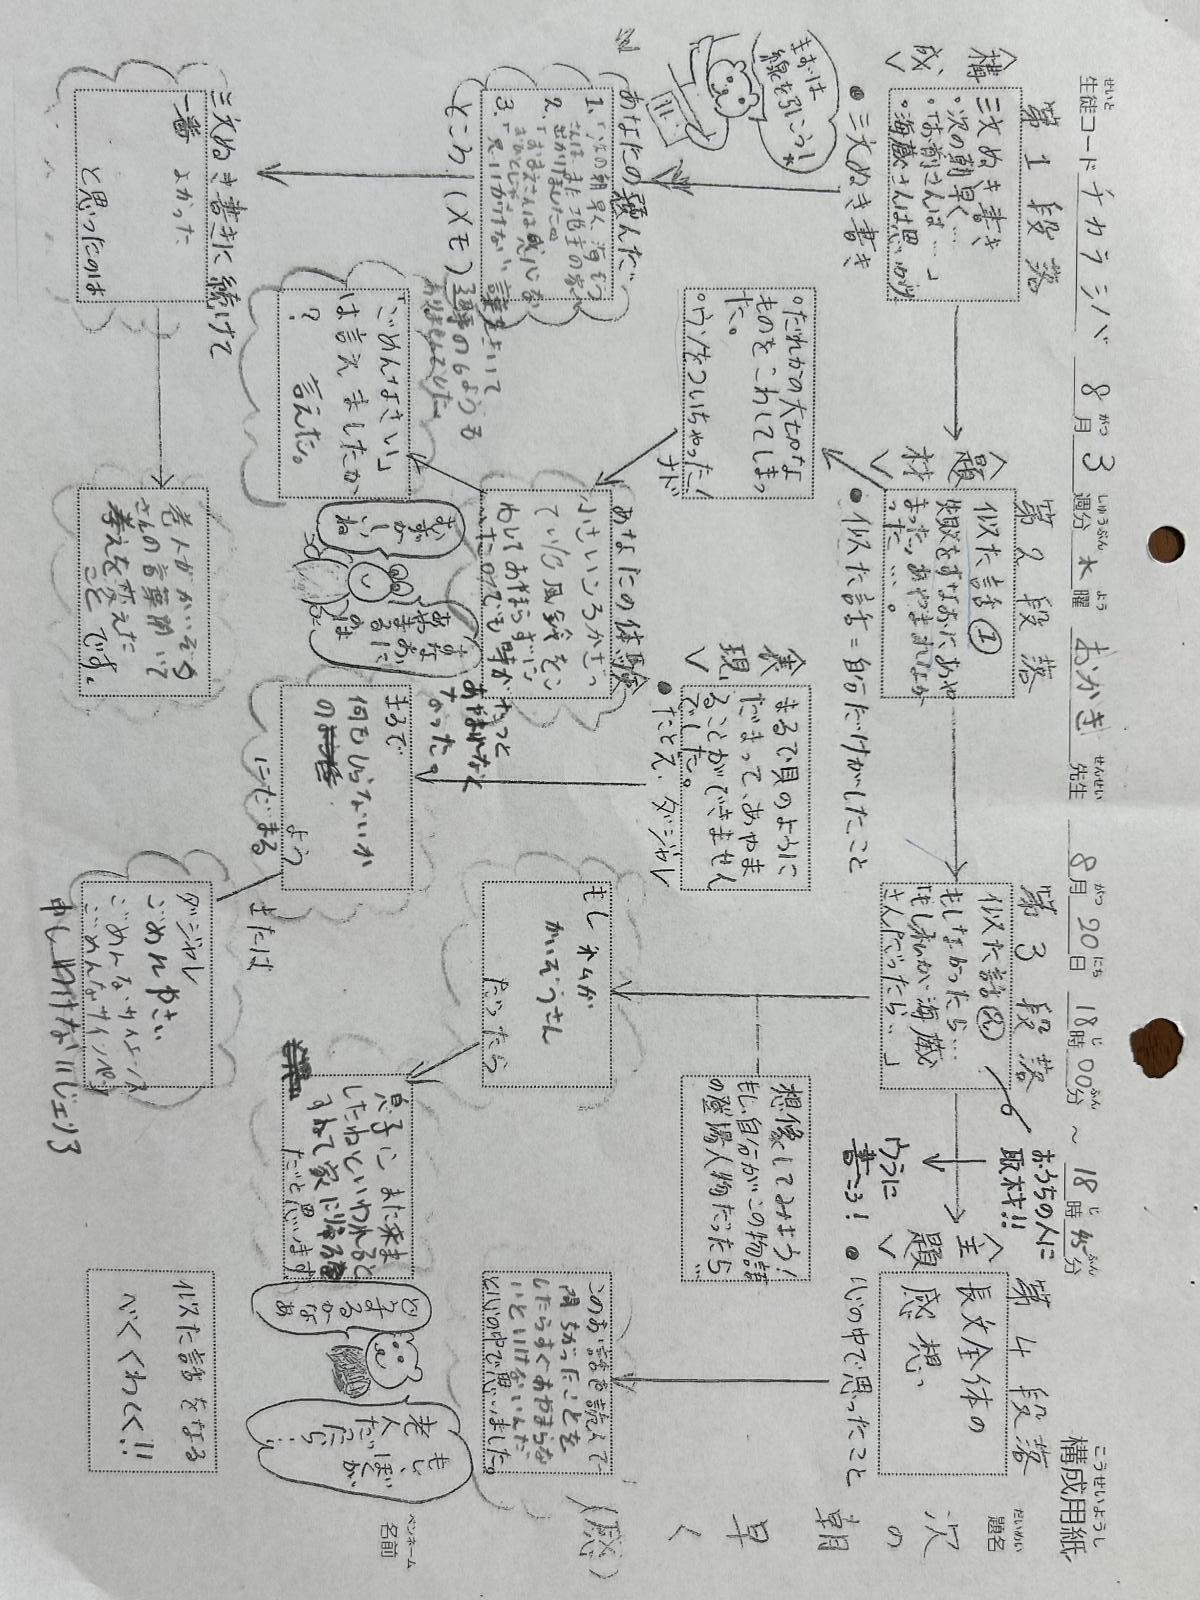 構成用紙
こうせいようし
生徒コード チカラシバ 8月3週分 水曜 おかき先生 8月20日 18時00分 ~ 18時45分
題名
だいめい
次の朝早く
(感)
ペンネーム
名前
<構成>
第1段落
三文ぬき書き
。次の朝早く…
。「お前さんは…」
。海蔵さんは思いがけ
●三文ぬき書き
まずは
線を引こう!
あなたの読んだ
ところ(メモ)
三文ぬき書きに続けて
一番よかった
と思ったのは
老人がかいぞう
さんの言葉聞いて
考えを変えた
ことです。
<題材>
第2段落
似た話①
失敗をすなおにあや
まった。あやまれなか
った…。
●似た話=自分だけがしたこと
。だれかの大切な
ものをこわしてしまっ
た。
。ウソをついちゃった!
ナド
あなたの体験
小さいころかざっ
ている風鈴をこ
わしてあやまらずに
いたのでいつも時がたつと
あやまれなく
なった。
「ごめんなさい」
は言えましたか
?
言えた。
すなおに
あやまる
のは
むずかしいね
<表現>
まるで貝のように
だまって、あやま
ることができません
でした。
●たとえ・ダジャレ
まるで
何もしらないか
の
ように
にだまる
または
ダジャレ
ごめんやさい
ごめんなサイエンス
ごめんなサインペン
申しわけないジェリア
第3段落
似た話②
もしなかったら…
「もし私が海蔵
さんだったら…」
おうちの人に
取材!!
うらに
書こう!
想像してみよう!
もし自分がこの物語
の登場人物だったら…
もしボムが
かいぞうさん
だったら
息子にまた来ま
したねといわれると
すねて家に帰る
だと思います
もし、ぼくが
老人だったら…
どうするかなあ
似た話をなる
べくくわしく!!
<主題>
第4段落
長文全体の
感想
●心の中で思ったこと
このお話を読んで
間ちがったことを
したらすぐあやまらな
いといけないんだ
と心の中で思いました。